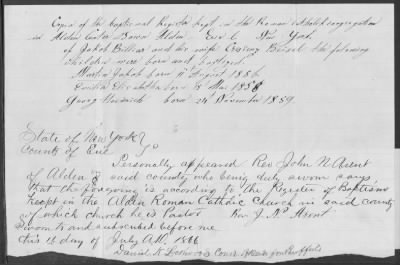 Copia of the baptismal Register kept in the Roman Catholic congregation
in Alden Center Town Alden Erie C. New York
of Jakob and his wife the following
children were born and baptized
Martin Jakob born 11 August 1856
Emilia Elisabetha born 8 Mai 1858
Georg Heinrich born 24 November 1859.
State of New York
County of Erie
Personally appeared Rev John N Arent
of Alden & said county who being duly sworn says
that the foregoing is according to the Register of Baptisms
kept in the Alden Roman Catholic Church in said county
of which church he is Pastor Rev. J. N. Arent
Sworn to and subscribed before me
this 16 day of July A.D. 1866
Daniel